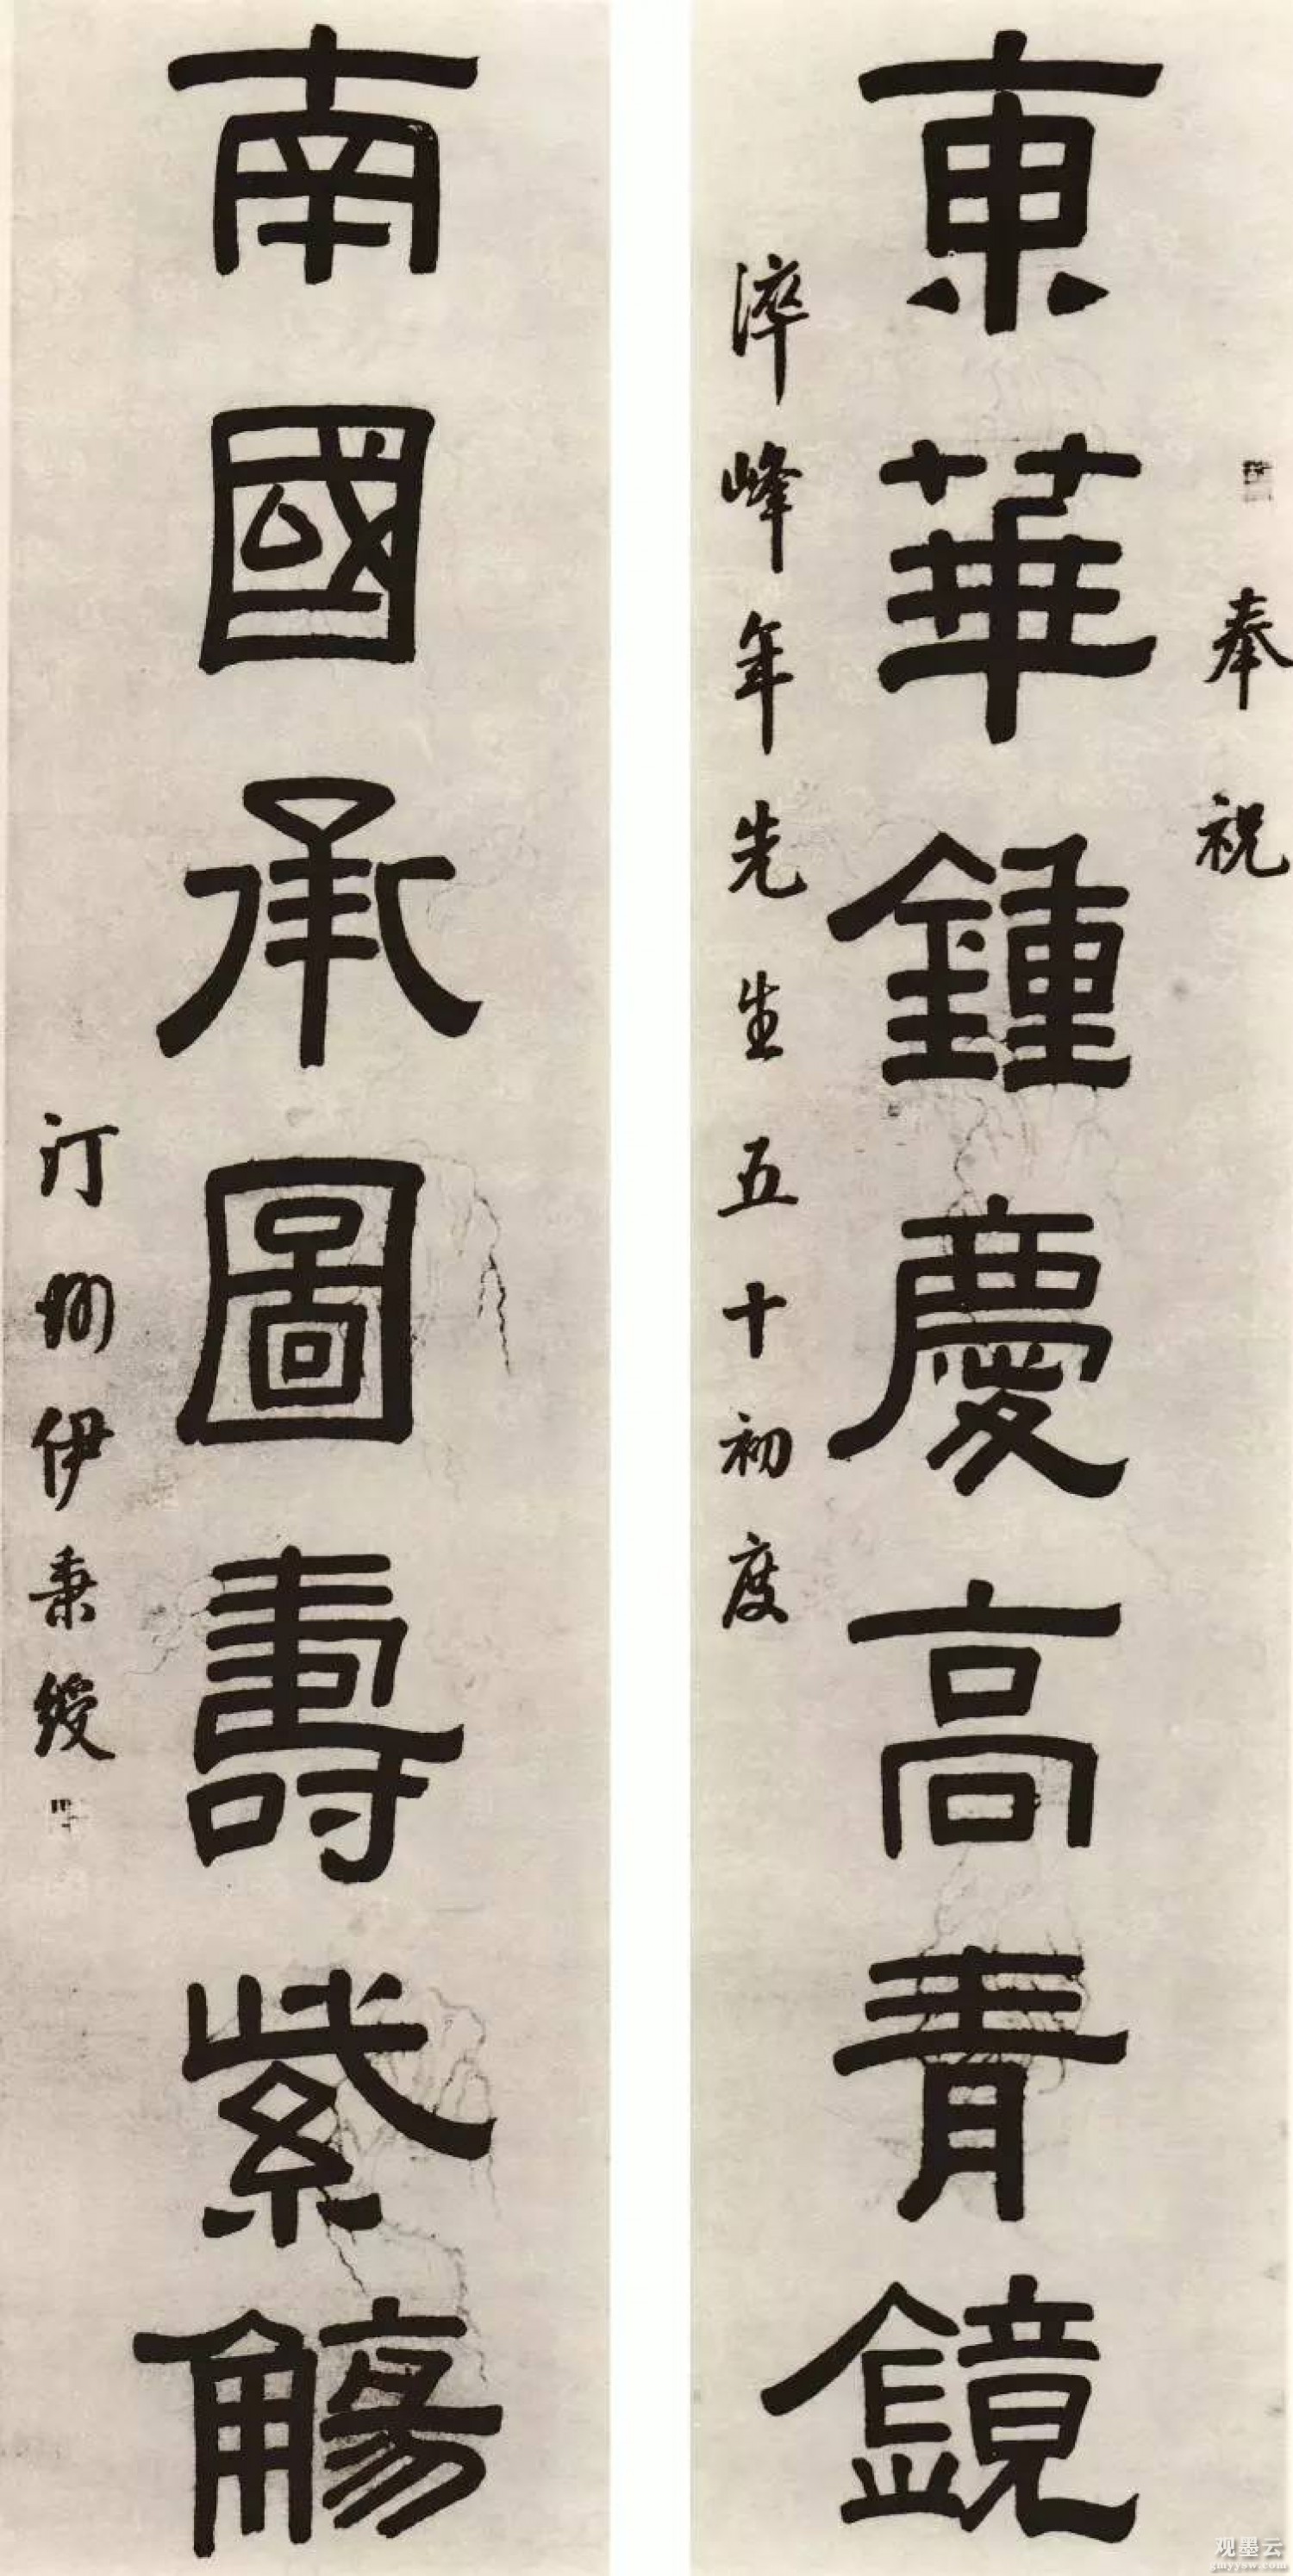 奉祝
東華鍾慶高青鏡
淬峰年先生五十初度
南國承圖壽紫觴
汀州伊秉綬
观墨云
gmyysw.com